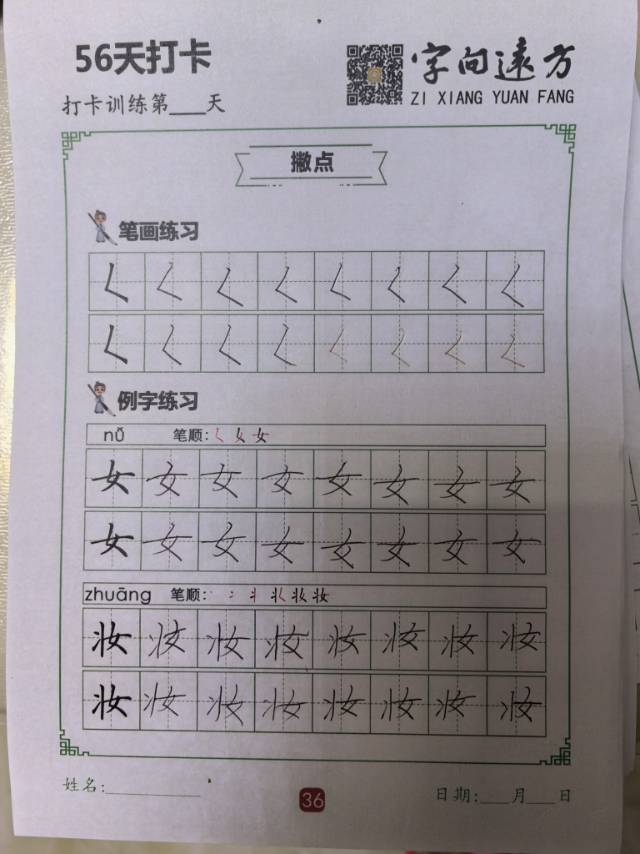 56天打卡
字向远方
打卡训练第___天
ZI XIANG YUAN FANG
撇点
笔画练习
㇛ ㇛ ㇛ ㇛ ㇛ ㇛ ㇛ ㇛
㇛ ㇛ ㇛ ㇛ ㇛ ㇛ ㇛ ㇛
例字练习
nǚ 笔顺:
女 女 女 女 女 女 女 女
女 女 女 女 女 女 女 女
zhuāng 笔顺:
妆 妆 妆 妆 妆 妆 妆 妆
妆 妆 妆 妆 妆 妆 妆 妆
姓名:__________
36
日期:___月___日